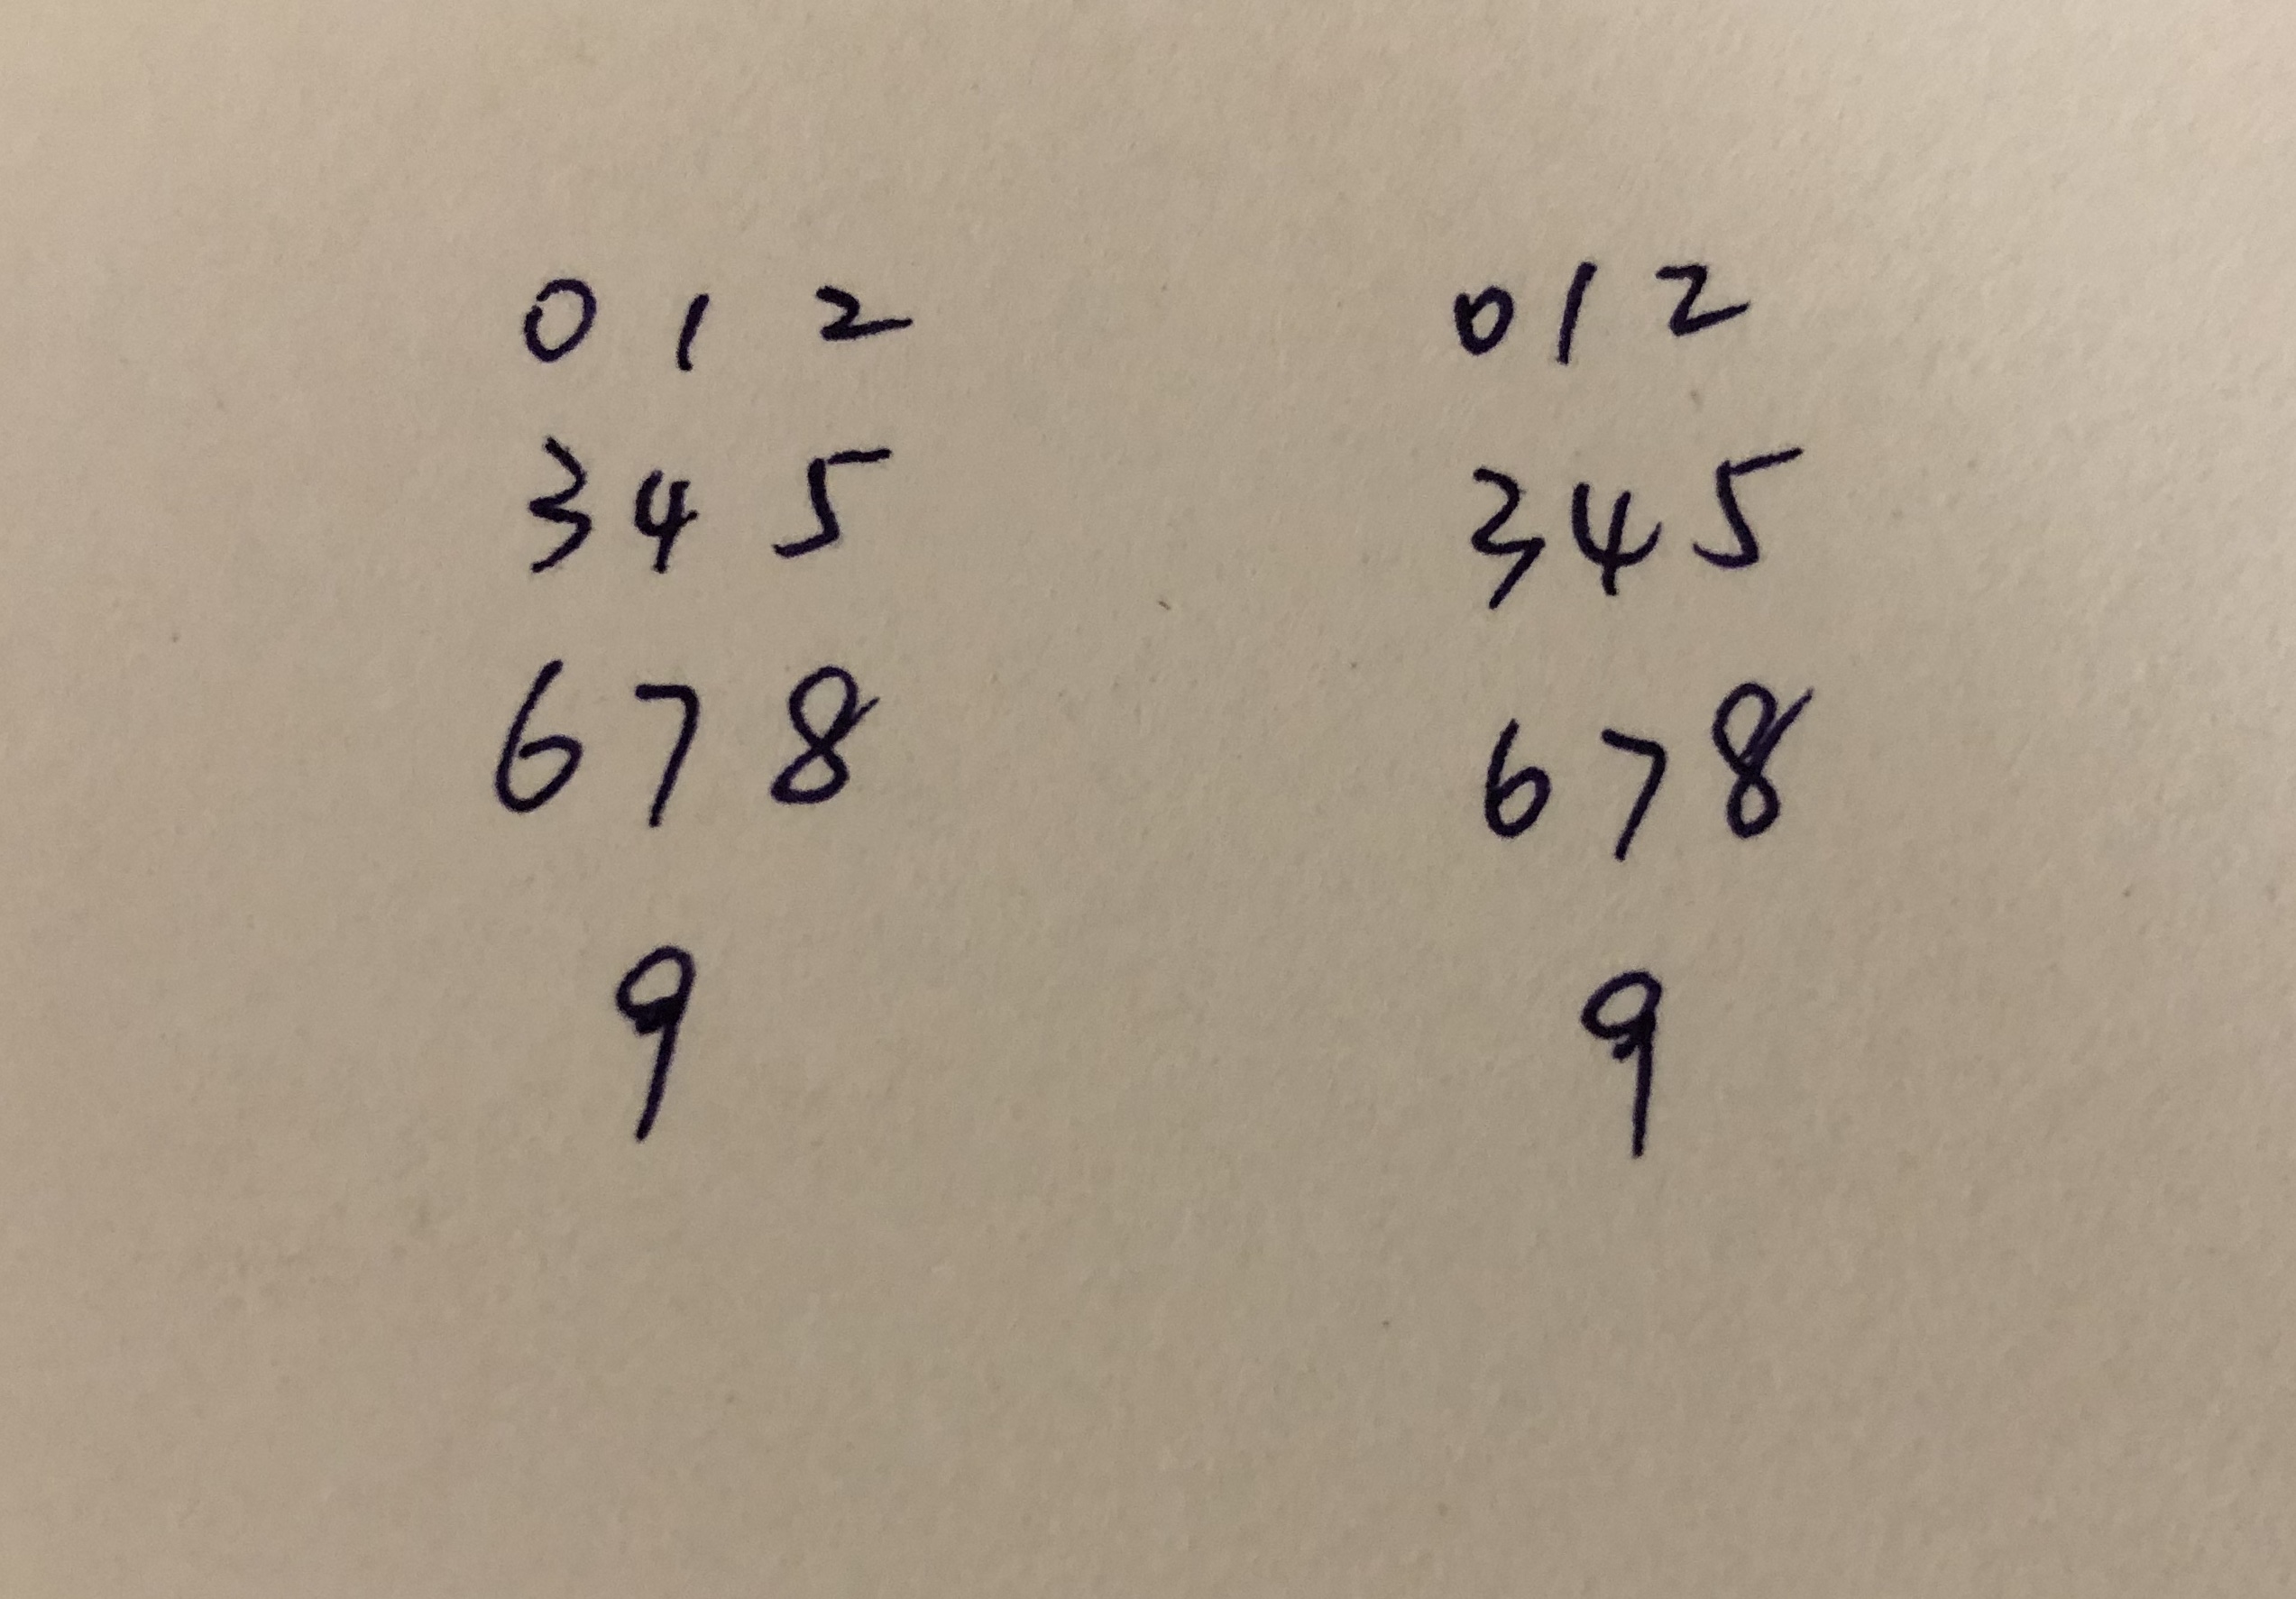 0 1 2
3 4 5
6 7 8
9
0 1 2
3 4 5
6 7 8
9